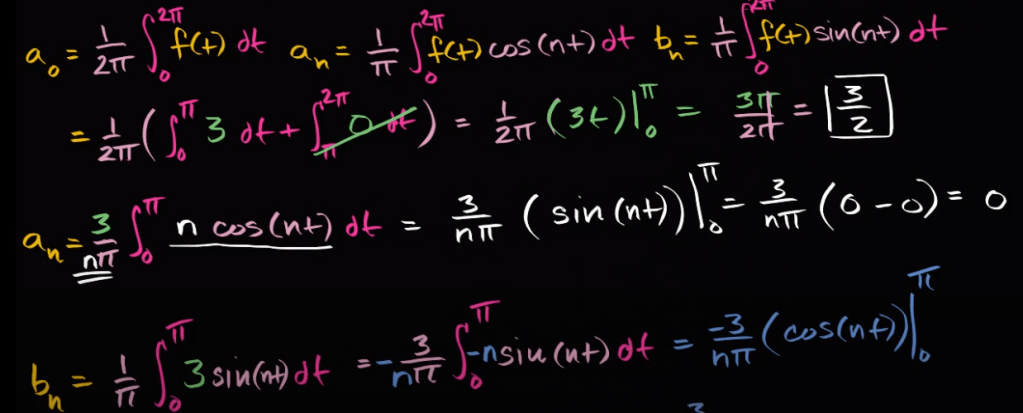 a₀ = 1/2π ∫₀^2π f(t) dt aₙ = 1/π ∫₀^2π f(t) cos(nt) dt bₙ = 1/π ∫₀^2π f(t) sin(nt) dt
= 1/2π (∫₀^π 3 dt + ∫_π^2π 0 dt) = 1/2π (3t)|₀^π = 3π/2π = 3/2
aₙ = 3/nπ ∫₀^π n cos(nt) dt = 3/nπ (sin(nt))|₀^π = 3/nπ (0 - 0) = 0
bₙ = 1/π ∫₀^π 3 sin(nt) dt = -3/nπ ∫₀^π -n sin(nt) dt = -3/nπ (cos(nt))|₀^π